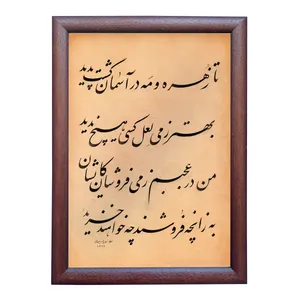 تا زهره و مه در آسمان گشت پدید
بهتر ز می لعل کسی هیچ ندید
من در عجبم ز می فروشان کایشان
به زانچه فروشند چه خواهند خرید